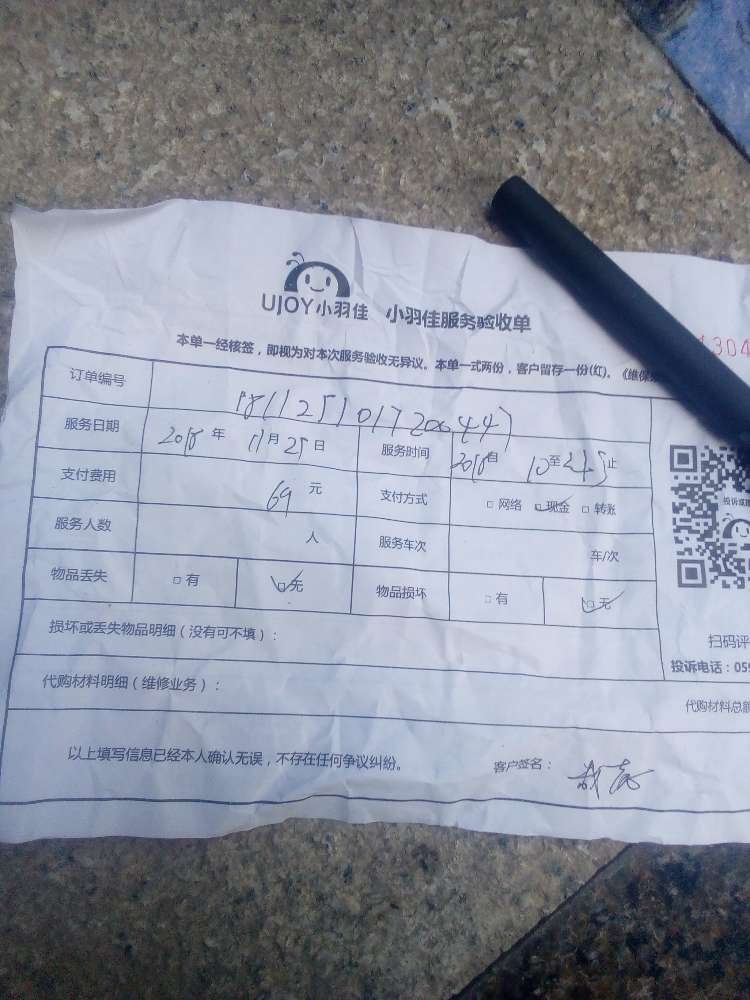 UJOY小羽佳 小羽佳服务验收单
本单一经核签，即视为对本次服务验收无异议。本单一式两份，客户留存一份(红)。《维保
1304
订单编号 181125101720644
服务日期 2018年 11月25日 服务时间
支付费用 69元 支付方式 □网络 ☑现金 □转账
服务人数 人 服务车次 车/次
物品丢失 □有 ☑无 物品损坏 □有 ☑无
损坏或丢失物品明细（没有可不填）：
扫码评
投诉电话：059
代购材料明细（维修业务）： 代购材料总额
以上填写信息已经本人确认无误，不存在任何争议纠纷。 客户签名：